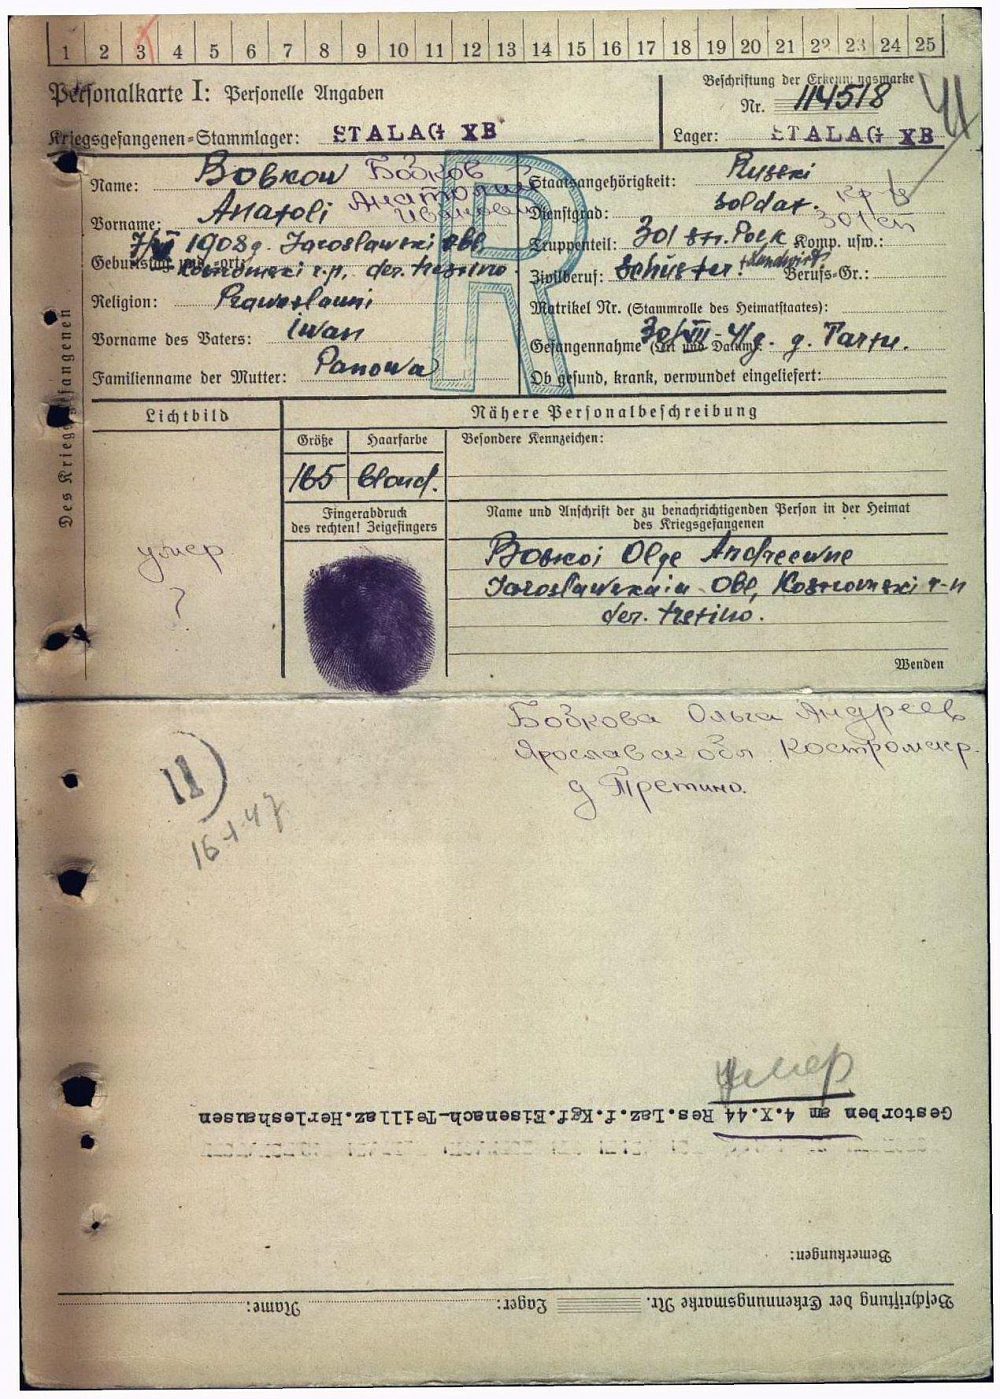 1 2 3 4 5 6 7 8 9 10 11 12 13 14 15 16 17 18 19 20 21 22 23 24 25
Personalkarte I: Personelle Angaben
Beschriftung der Erkennungsmarke
Nr. 114518
Kriegsgefangenen-Stammlager: STALAG XB
Lager: STALAG XB
Des Kriegsgefangenen
Name: Bobkow Бобков
Vorname: Anatoli Анатолий Иванович
Geburtstag und -ort: 1908 g. Jaroslawski obl.
Kostromski r.n, der. tretino.
Religion: Prawoslawni
Vorname des Vaters: iwan
Familienname der Mutter: Panowa
R
Staatsangehörigkeit: Russki
Dienstgrad: Soldat.
Кр-ц
301 сп
Truppenteil: 301 str. Polk Komp. usw.:
Zivilberuf: Schuster. + Landwirt Berufs-Gr.:
Matrikel Nr. (Stammrolle des Heimatstaates):
Gefangennahme (Ort und Datum): 30/VII-41 g. g. Tartu.
Ob gesund, krank, verwundet eingeliefert:
Lichtbild
Nähere Personalbeschreibung
Größe
Haarfarbe
Besondere Kennzeichen:
165
blond.
Fingerabdruck
des rechten! Zeigefingers
Name und Anschrift der zu benachrichtigenden Person in der Heimat
des Kriegsgefangenen
Bobkoi Olge Andreewne
Jaroslawskaia obl, Kostromski r-n
der. tretino.
умер
?
Wenden
Бобкова Ольга Андреев
Ярославск обл. Костромск р.
д Третино.
II)
16-1-47
умер
Gestorben am 4.X.44 Res.Laz.f.Kgf.Eisenach-Teillaz.Herleshausen
Bemerkungen:
Beschriftung der Erkennungsmarke Nr. Lager: Name: